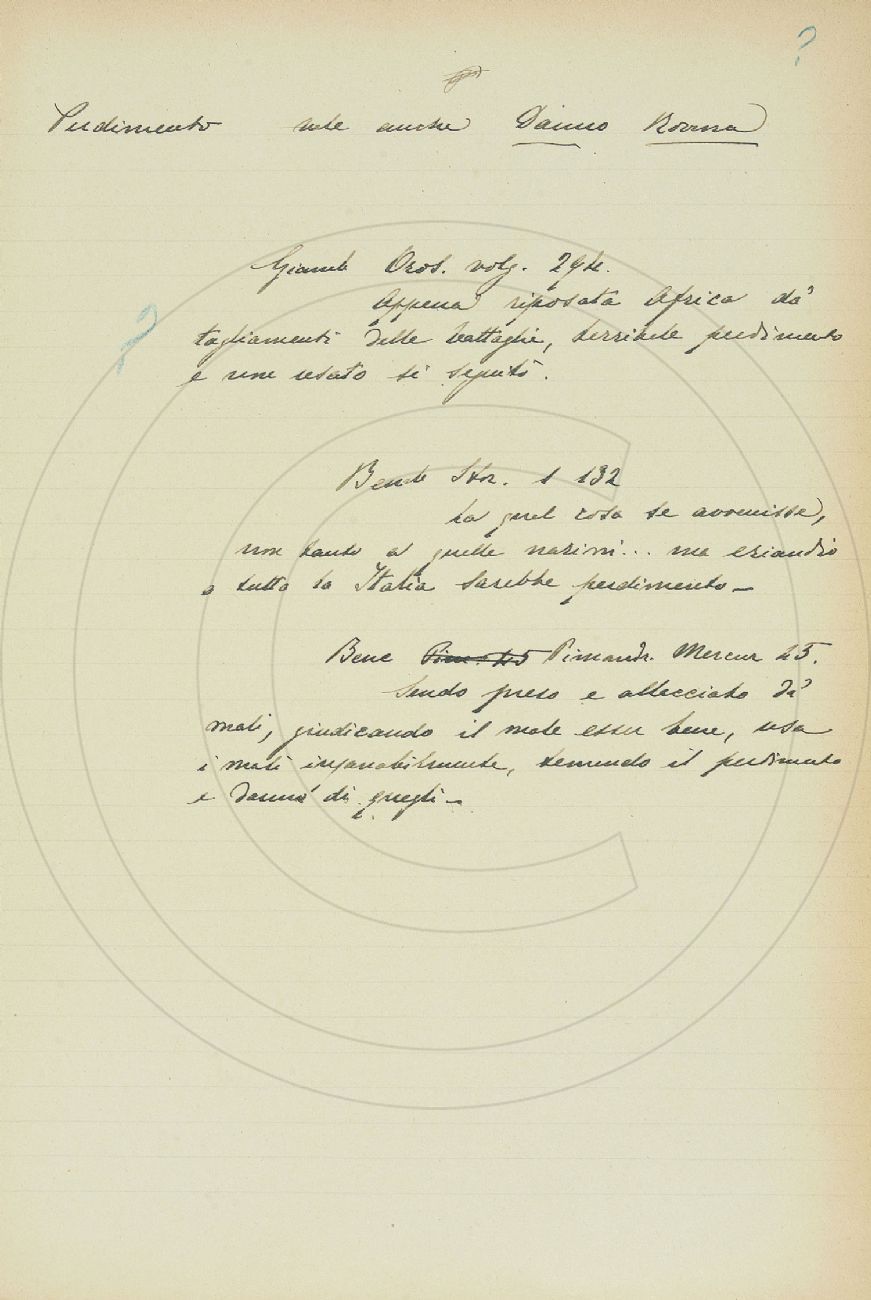 ?
Perdimento vale anche Danno Rovina
Giamb Oros. volg. 294.
Appena riposata Africa da'
tagliamenti delle battaglie, terribile perdimento
e non usato si seguitò.
?
Bemb Stor. 1 132
La qual cosa se avvenisse,
non tanto a quelle nazioni... ma eziandio
a tutta la Italia sarebbe perdimento_
Benc Pimandr. Mercur 45.
Sendo preso e allecciato da'
mali, giudicando il male esser bene, usa
i mali insanabilmente, temendo il perdimento
e danno di quegli_